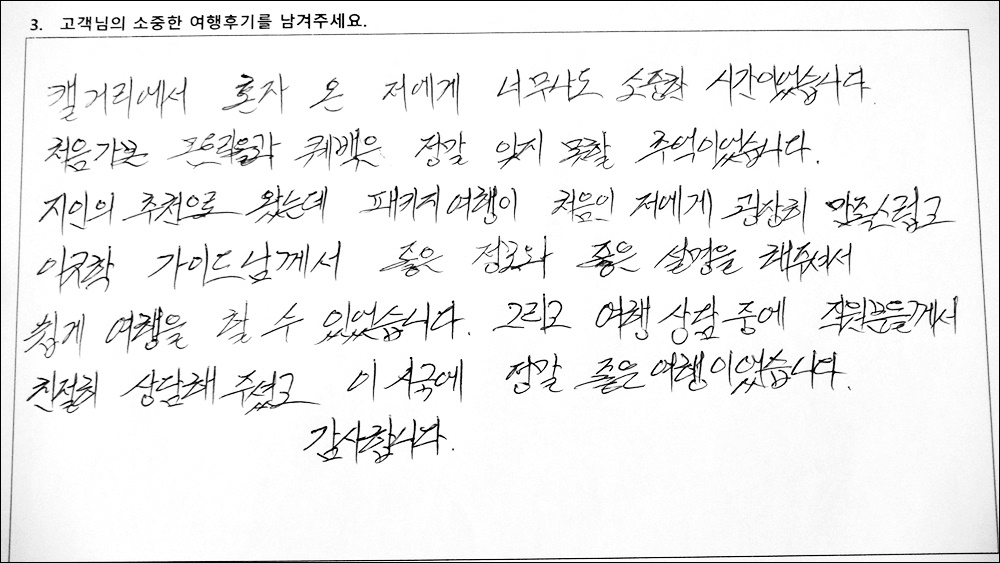 3. 고객님의 소중한 여행후기를 남겨주세요.
캘거리에서 혼자 온 저에게 너무나도 소중한 시간이었습니다.
처음가본 몬트리올과 퀘백은 정말 잊지 못할 추억이었습니다.
지인의 추천으로 왔는데 패키지여행이 처음인 저에게 굉장히 만족스럽고
이규학 가이드님께서 좋은 정보와 좋은 설명을 해주셔서
쉽게 여행을 할 수 있었습니다. 그리고 여행 상담 중에 직원분들께서
친절히 상담해 주셨고 이 시국에 정말 좋은 여행이었습니다.
감사합니다.